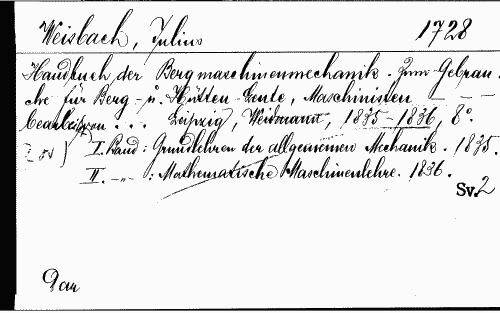 Weisbach, Julius 1728
Handbuch der Bergmaschinenmechanik. Zum Gebrau-
che für Berg- u. Hütten-Leute, Maschinisten
bearbeitet ... Leipzig, Weidmann, 1835-1836, 8°.
I. Band: Grundlehren der allgemeinen Mechanik. 1835.
II. -"- : Mathematische Maschinenlehre. 1836.
Sv. 2